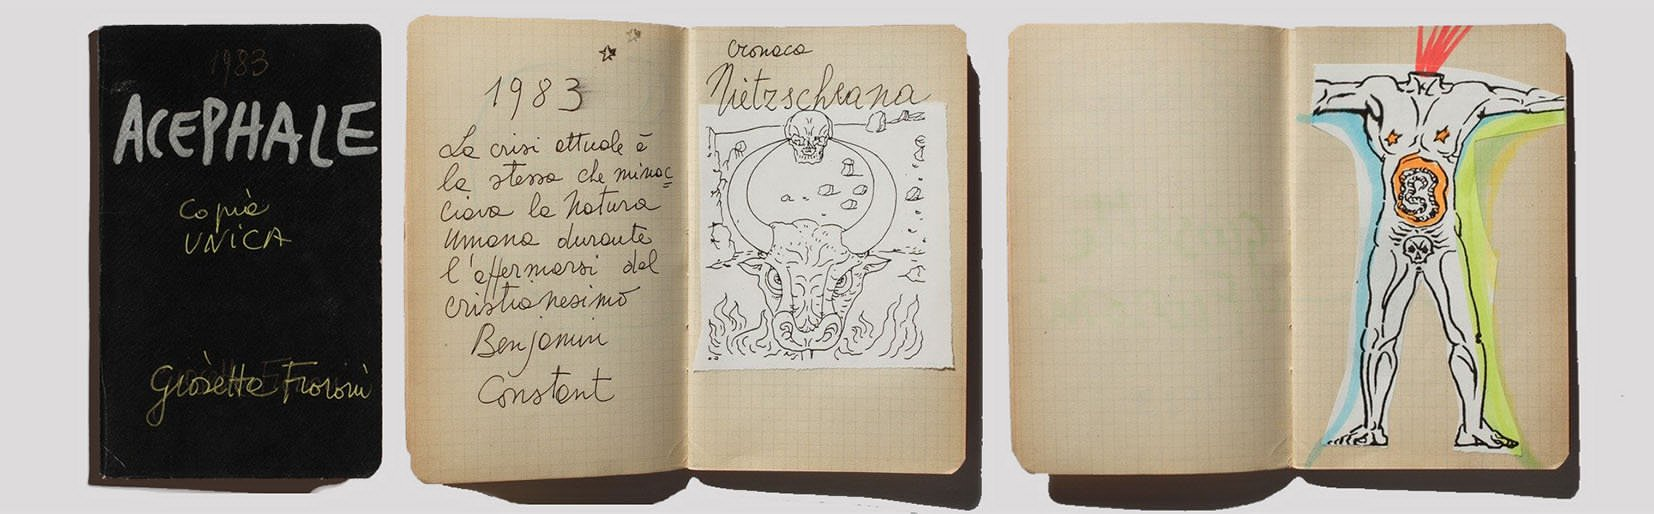 1983
ACEPHALE
Copia
UNICA
Giosetta Fioroni
1983
La crisi attuale è
la stessa che minac
ciava la natura
umana durante
l'affermarsi del
cristianesimo
Benjamin
Constant
cronaca
Nietzscheana